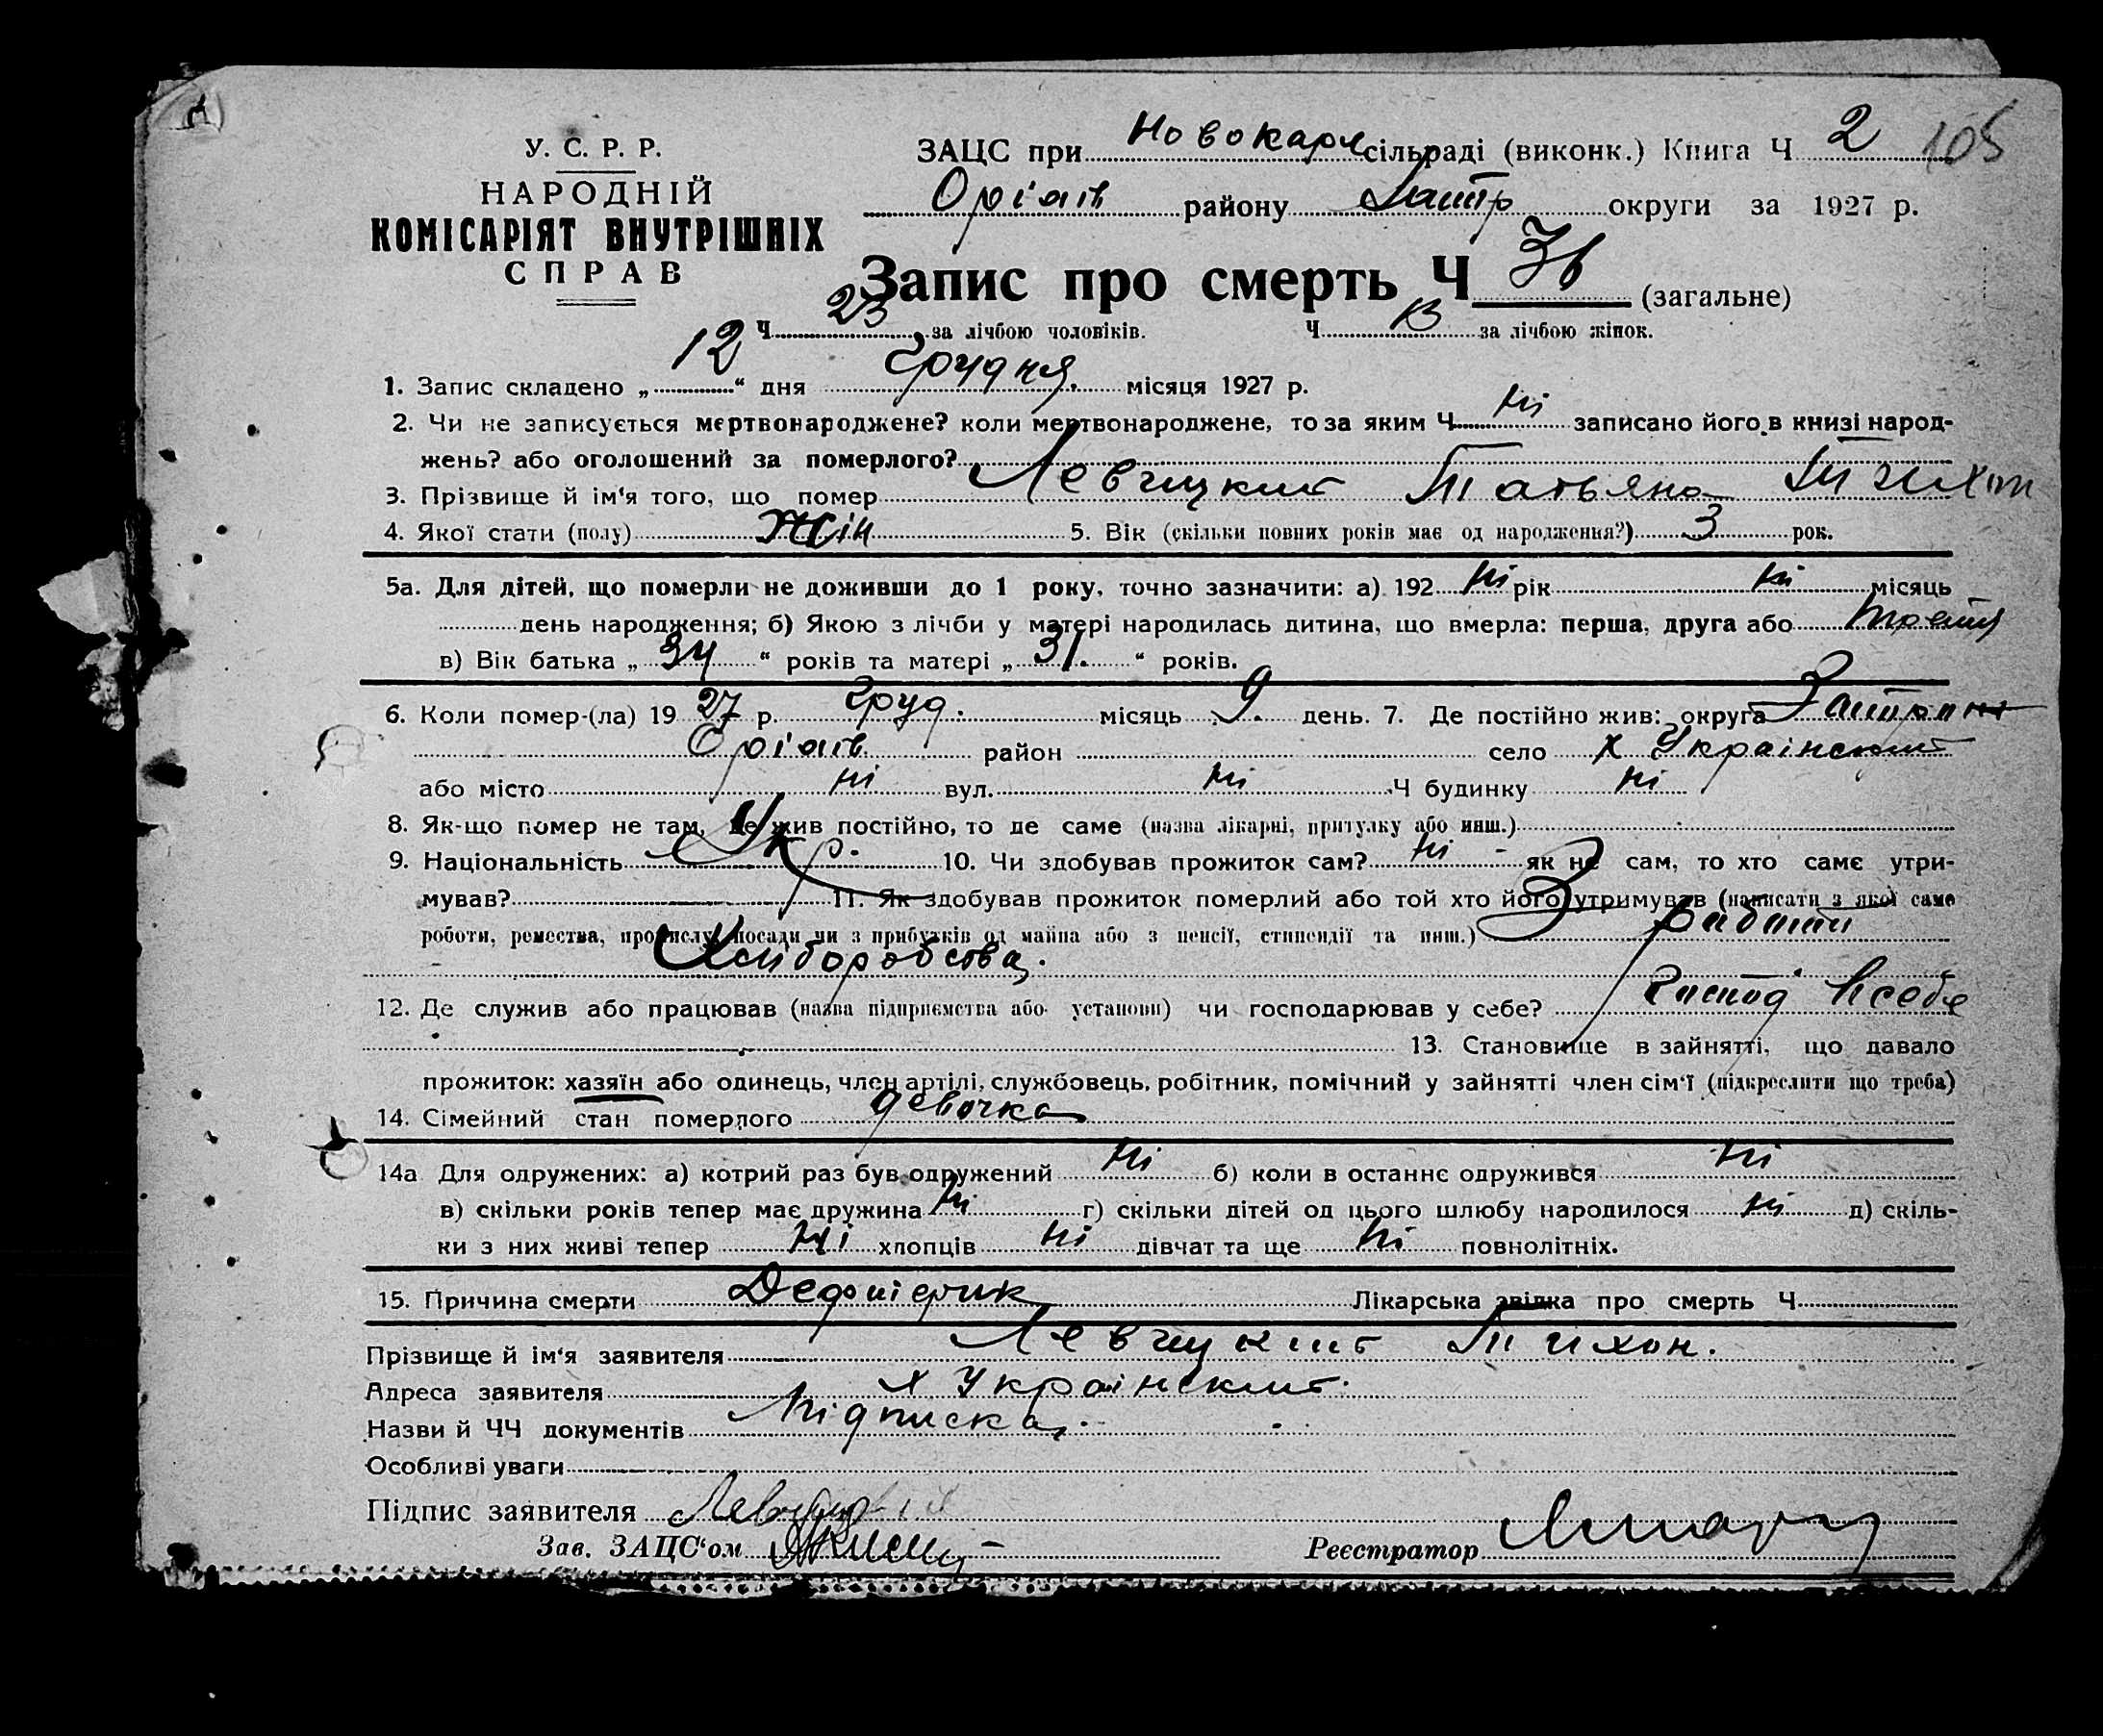 У. С. Р. Р.
НАРОДНІЙ
КОМІСАРІЯТ ВНУТРІШНІХ
СПРАВ
ЗАЦС при Новокарл сільраді (виконк.) Книга Ч 2 105
Оріхів району Запор округи за 1927 р.
Запис про смерть Ч 36 (загальне)
Ч 23 за лічбою чоловіків. Ч 13 за лічбою жінок.
1. Запис складено „12“ дня Грудня місяця 1927 р.
2. Чи не записується мертвонароджене? коли мертвонароджене, то за яким Ч Ні записано його в книзі народ-
жень? або оголошений за померлого?
3. Прізвище й ім'я того, що помер Левчицкий Татьяна Тихон
4. Якої стати (полу) жін 5. Вік (скільки повних років має од народження?) 3 рок.
5а. Для дітей, що померли не доживши до 1 року, точно зазначити: а) 192 Ні рік Ні місяць
день народження; б) Якою з лічби у матері народилась дитина, що вмерла: перша, друга або третя
в) Вік батька „34“ років та матері „31.“ років.
6. Коли помер-(ла) 1927 р. Груд. місяць 9. день. 7. Де постійно жив: округа
Оріхів район село х Українский
або місто Ні вул. Ні Ч будинку Ні
8. Як-що помер не там, де жив постійно, то де саме (назва лікарні, притулку або инш.)
9. Національність Укр. 10. Чи здобував прожиток сам? Ні як не сам, то хто саме утри-
мував? 11. Як здобував прожиток померлий або той хто його утримував (написати з якої саме
роботи, ремества, промислу, посади чи з прибутків од майна або з пенсії, стипендії та инш.) З работи
Хліборобства.
12. Де служив або працював (назва підприємства або установи) чи господарював у себе? Господ Всебе
13. Становище в зайнятті, що давало
прожиток: хазяїн або одинець, член артілі, службовець, робітник, помічний у зайнятті член сім'ї (підкреслити що треба)
14. Сімейний стан померлого девочка
14а Для одружених: а) котрий раз був одружений Ні б) коли в останнє одружився Ні
в) скільки років тепер має дружина Ні г) скільки дітей од цього шлюбу народилося Ні д) скіль-
ки з них живі тепер Ні хлопців Ні дівчат та ще Ні повнолітніх.
15. Причина смерти Дефтерик Лікарська звідка про смерть Ч
Прізвище й ім'я заявителя Левчицкий Тихон.
Адреса заявителя х Українский.
Назви й ЧЧ документів Підписка.
Особливі уваги
Підпис заявителя
Зав. ЗАЦС'ом Реєстратор